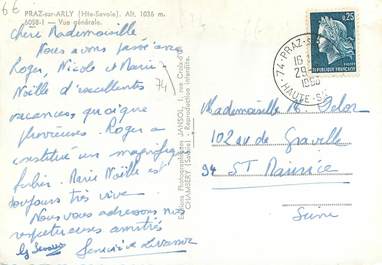 66
PRAZ-sur-ARLY (Hte-Savoie). Alt. 1036 m.
6058-1 — Vue générale.
Chère Mademoiselle
Nous avons passé avec
Roger, Nicole et Marie-
Noëlle d'excellentes
vacances, quoique
pluvieuses. Roger a
constitué un magnifique
herbier. Marie Noëlle est
toujours très vive.
Nous vous adressons nos
respectueuses amitiés
Geneviève
74
Editions Photographiques JANSOL, 1, rue Croix-d'Or
CHAMBÉRY (Savoie) - Reproduction interdite.
0,25
REPUBLIQUE FRANÇAISE
74 - PRAZ-S
16
29
HAUTE-S
Mademoiselle M. Delor
102 av de Graville
94 ST Maurice
Seine